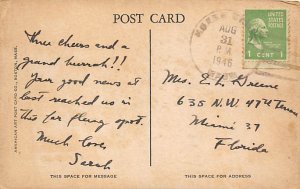 POST CARD
Three cheers and a
grand hurrah!!
Your good news at
last reached us in
this far flung spot.
Much love,
Sarah
THIS SPACE FOR MESSAGE
AUG
31
P.M.
1946
UNITED STATES
POSTAGE
1 CENT 1
Mrs. E. L. Greene
635 N.W. 47th Terrace
Miami 37
Florida
THIS SPACE FOR ADDRESS